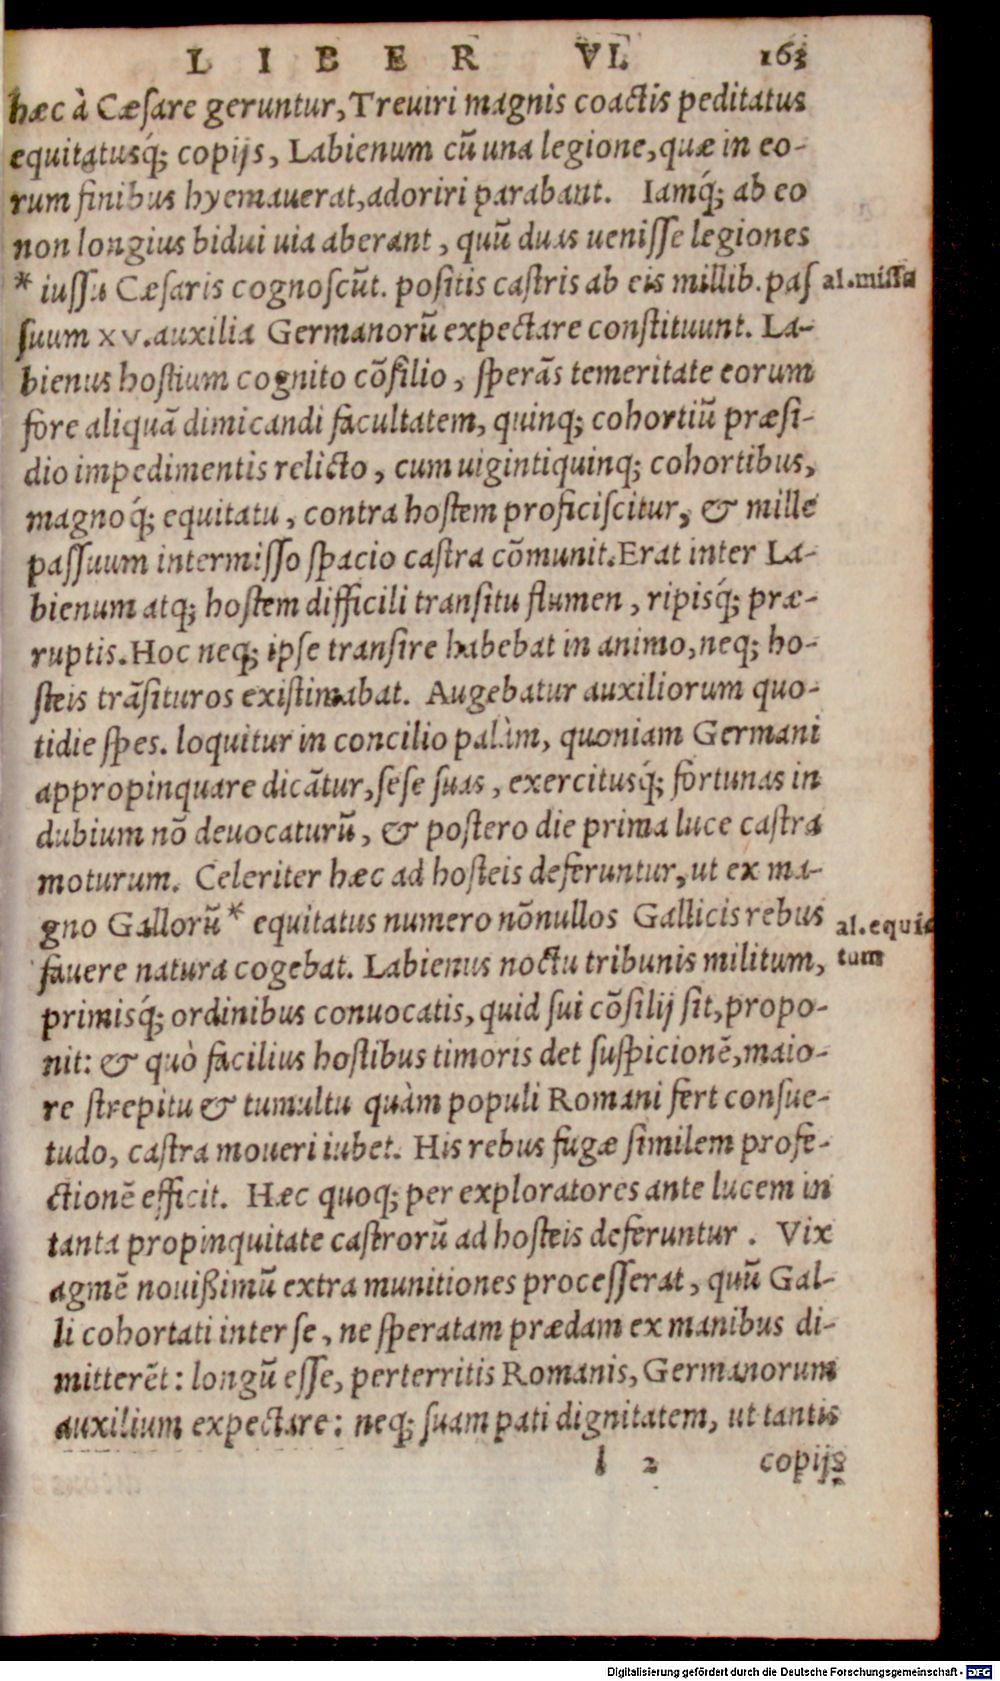 LIBER VI. 163
hæc à Cæsare geruntur, Treuiri magnis coactis peditatus
equitatusq́; copijs, Labienum cū una legione, quæ in eo-
rum finibus hyemauerat, adoriri parabant. Iamq́; ab eo
non longius bidui uia aberant, quū duas uenisse legiones
* iussu Cæsaris cognoscūt. positis castris ab eis millib. pas al. missu
suum xv. auxilia Germanorū expectare constituunt. La-
bienus hostium cognito cōsilio, sperās temeritate eorum
fore aliquā dimicandi facultatem, quinq; cohortiū præsi-
dio impedimentis relicto, cum uigintiquinq; cohortibus,
magnoq́; equitatu, contra hostem proficiscitur, & mille
passuum intermisso spacio castra cōmunit. Erat inter La-
bienum atq; hostem difficili transitu flumen, ripisq́; præ-
ruptis. Hoc neq; ipse transire habebat in animo, neq; ho-
steis trāsituros existimabat. Augebatur auxiliorum quo-
tidie spes. loquitur in concilio palàm, quoniam Germani
appropinquare dicātur, sese suas, exercitusq́; fortunas in
dubium nō deuocaturū, & postero die prima luce castra
moturum. Celeriter hæc ad hosteis deferuntur, ut ex ma-
gno Gallorū * equitatus numero nōnullos Gallicis rebus al. equi-
fauere natura cogebat. Labienus noctu tribunis militum, tum
primisq́; ordinibus conuocatis, quid sui cōsilij sit, propo-
nit: & quò facilius hostibus timoris det suspicionē, maio-
re strepitu & tumultu quàm populi Romani fert consue-
tudo, castra moueri iubet. His rebus fugæ similem profe-
ctionē efficit. Hæc quoq; per exploratores ante lucem in
tanta propinquitate castrorū ad hosteis deferuntur. Vix
agmē nouißimū extra munitiones processerat, quū Gal-
li cohortati inter se, ne speratam prædam ex manibus di-
mitterēt: longū esse, perterritis Romanis, Germanorum
auxilium expectare: neq; suam pati dignitatem, ut tantis
l 2 copijs
Digitalisierung gefördert durch die Deutsche Forschungsgemeinschaft - DFG